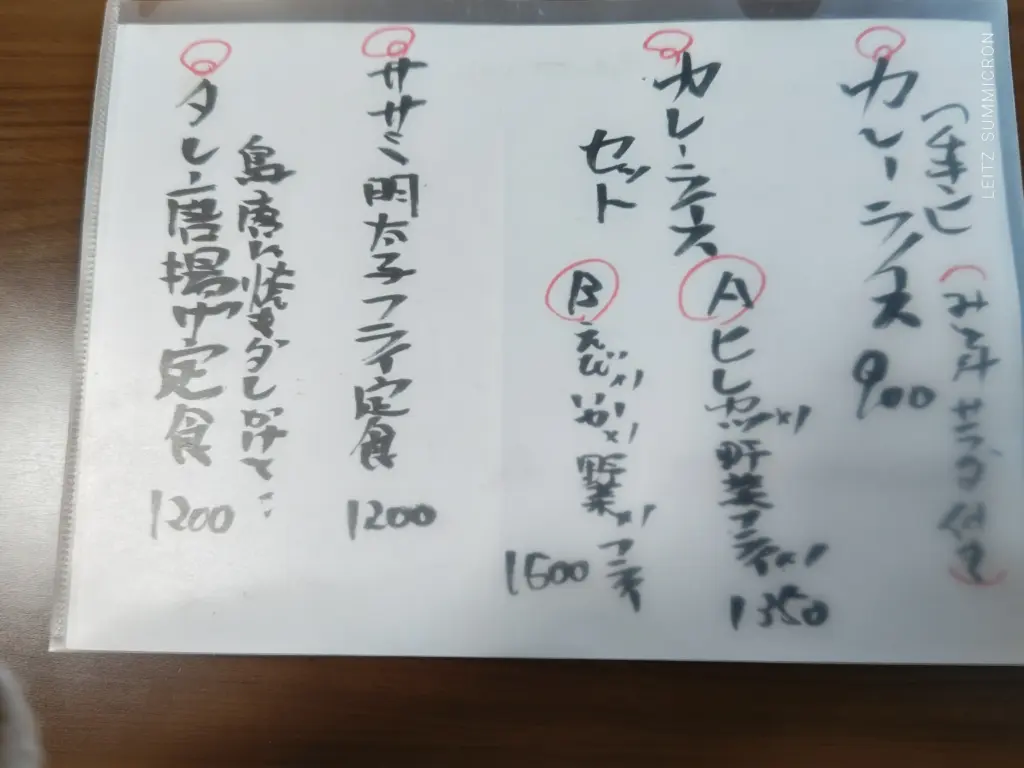 カレーライス 900
(みそ汁 サラダ付)
カレーライス
セット
A ヒレカツ×1 野菜フライ×1
1350
B えび×1 いか×1 野菜×1 フライ
1600
ササミ明太子フライ定食 1200
タレー唐揚げ定食 1200
鳥唐に焼きダレかけて
LEITZ SUMMICRON